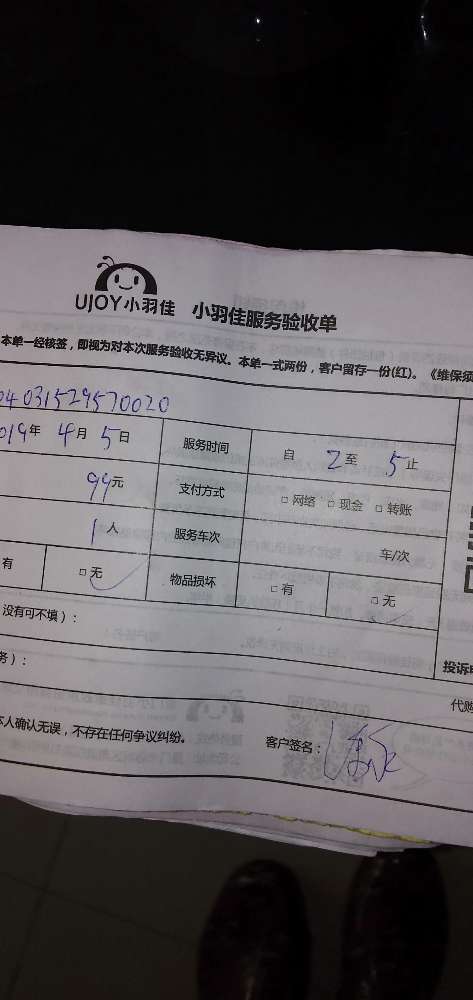 UJOY小羽佳 小羽佳服务验收单
本单一经核签，即视为对本次服务验收无异议。本单一式两份，客户留存一份(红)。《维保须
04031529570020
2019年 4月 5日 服务时间 自 2 至 5 止
99元 支付方式 □网络 □现金 □转账
1人 服务车次 车/次
有 □无 物品损坏 □有 □无
没有可不填）：
投诉电
务）：
代购
本人确认无误，不存在任何争议纠纷。 客户签名：